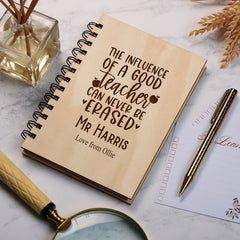 THE INFLUENCE
OF A GOOD
Teacher
CAN NEVER BE
ERASED
MR HARRIS
Love from Ollie